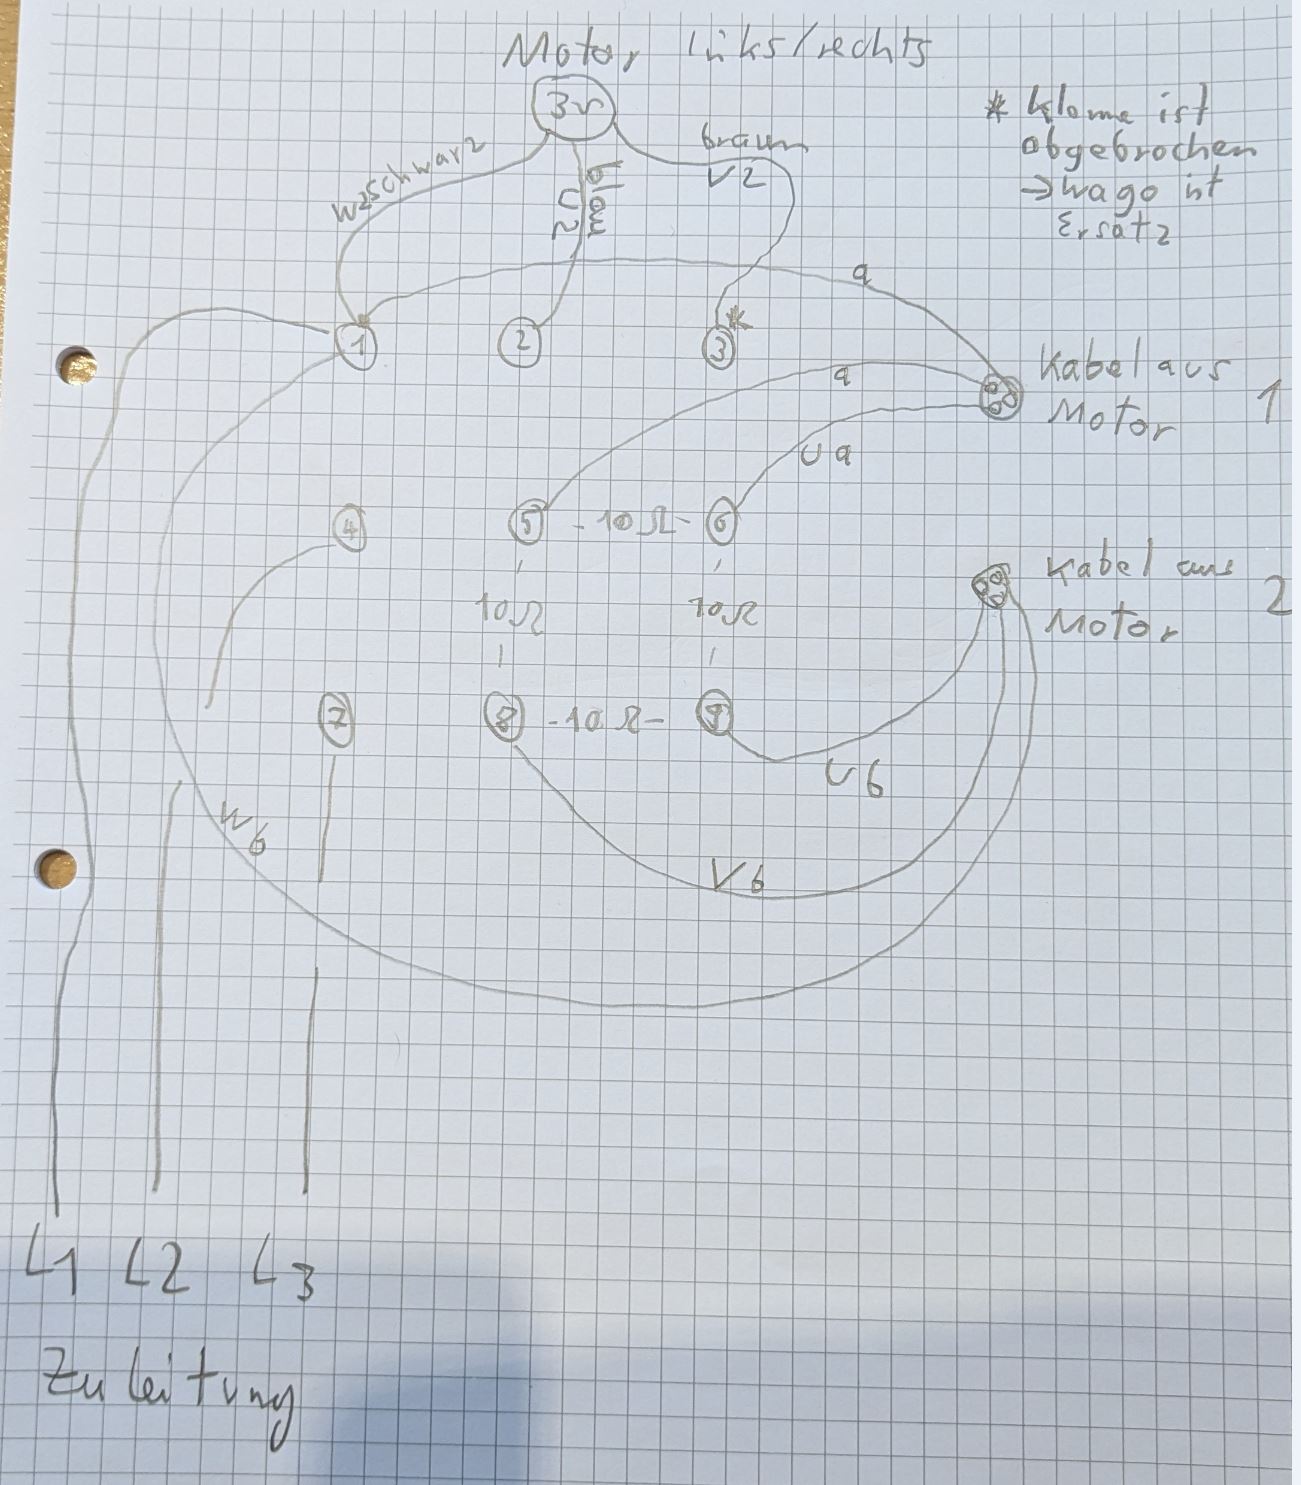 Motor links/rechts
3~
* Klome ist
abgebrochen
→ wago ist
Ersatz
W2 schwarz
blau
U2
braun
V2
a
1
2
3
*
a
Kabel aus
Motor
1
U a
4
5
- 10 Ω -
6
10 Ω
10 Ω
Kabel aus
Motor
2
7
8
- 10 Ω -
9
U 6
W 6
V 6
L1 L2 L3
Zuleitung